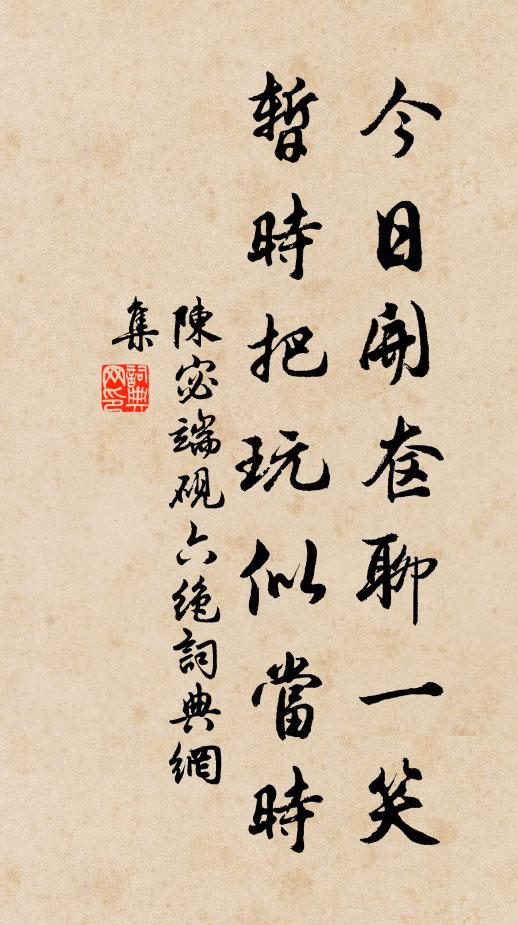 今日開奩聊一笑
暫時把玩似當時
陳宓端硯六絕詞典網
集
詞典
网印